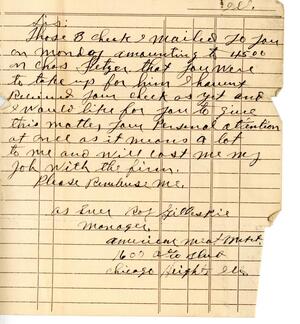 Ill.
Sirs:
Those 3 Check I mailed to you
on Monday amounting to 4500
on Chas Fitzer that you were
to take up for him I havent
Received your check as yet and
I would like for you to give
this matter your Personal attention
at once as it means a lot
to me and will cost me my
job with the firm.
Please Reimburse me.
as Ever Roy Gilleskie
Manager
American Meat Market
1607
Chicago Heights Ill.